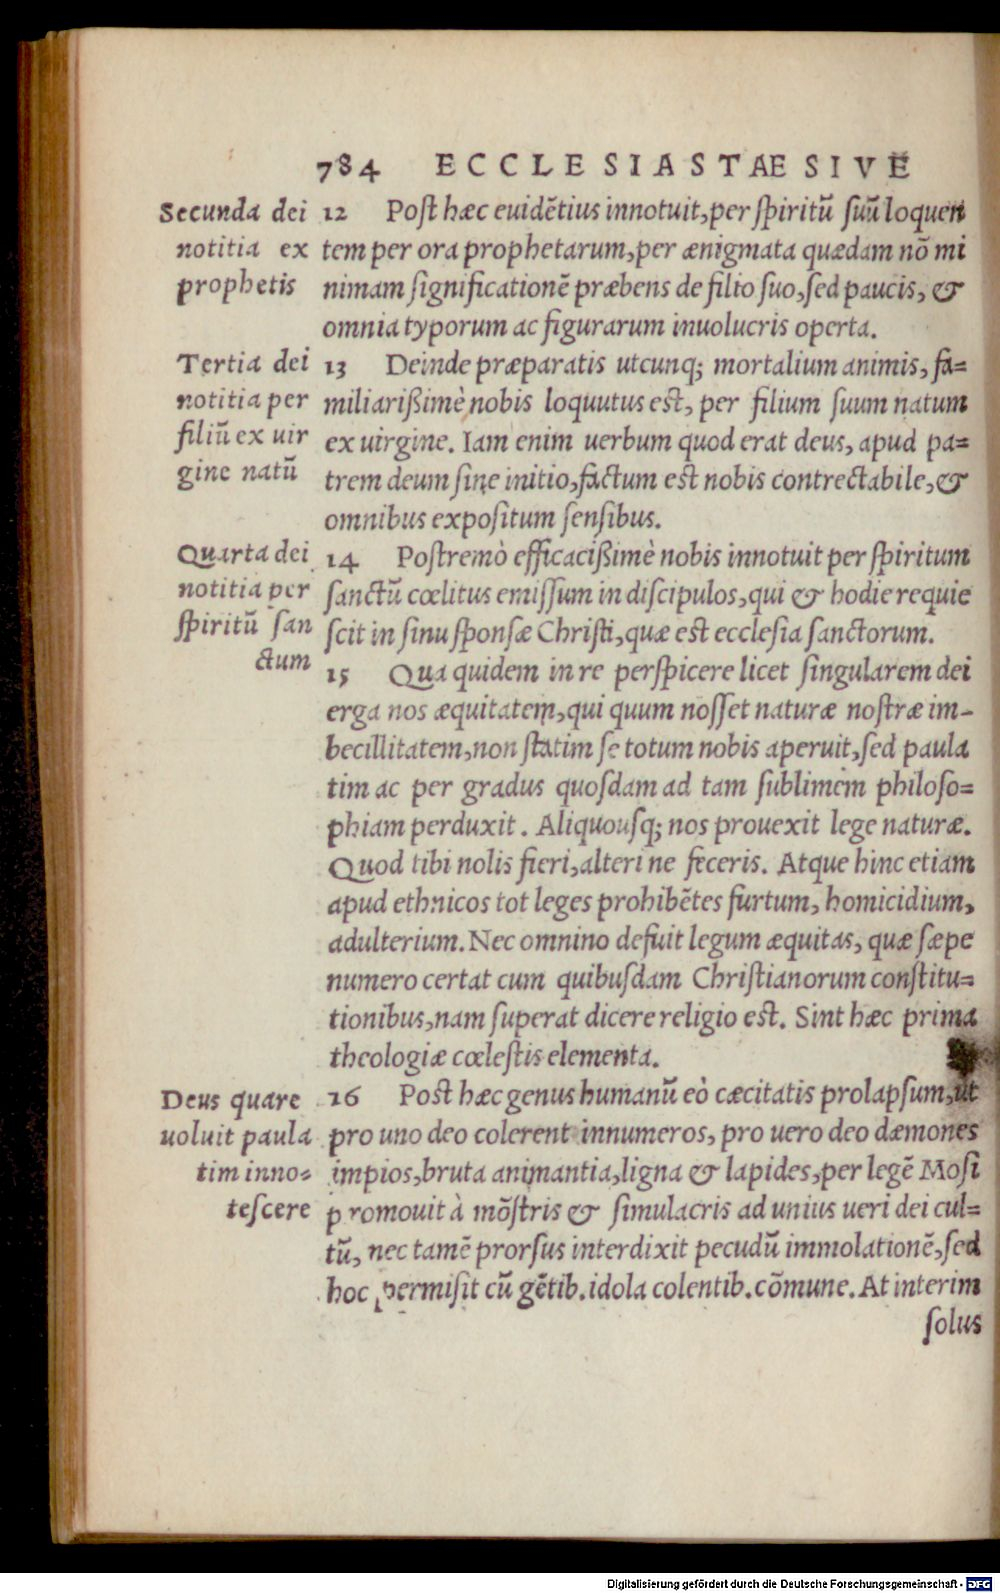 784 ECCLESIASTAE SIVE
Secunda dei
notitia ex
prophetis
12 Post hæc euidẽtius innotuit, per ſpiritũ ſuũ loquen
tem per ora prophetarum, per ænigmata quædam nõ mi
nimam ſignificationẽ præbens de filio ſuo, ſed paucis, &
omnia typorum ac figurarum inuolucris operta.
Tertia dei
notitia per
filiũ ex uir
gine natũ
13 Deinde præparatis utcunq; mortalium animis, fa=
miliarißimè nobis loquutus est, per filium ſuum natum
ex uirgine. Iam enim uerbum quod erat deus, apud pa=
trem deum ſine initio, factum est nobis contrectabile, &
omnibus expoſitum ſenſibus.
Quarta dei
notitia per
ſpiritũ ſan
ctum
14 Postremò efficacißimè nobis innotuit per ſpiritum
ſanctũ cœlitus emiſſum in diſcipulos, qui & hodie requie
ſcit in ſinu ſponſæ Chriſti, quæ est eccleſia ſanctorum.
15 Qua quidem in re perſpicere licet ſingularem dei
erga nos æquitatem, qui quum noſſet naturæ noſtræ im-
becillitatem, non statim ſe totum nobis aperuit, ſed paula
tim ac per gradus quoſdam ad tam ſublimem philoſo=
phiam perduxit. Aliquouſq; nos prouexit lege naturæ.
Quod tibi nolis fieri, alteri ne feceris. Atque hinc etiam
apud ethnicos tot leges prohibẽtes furtum, homicidium,
adulterium. Nec omnino defuit legum æquitas, quæ ſæpe
numero certat cum quibuſdam Chriſtianorum constitu=
tionibus, nam ſuperat dicere religio est. Sint hæc prima
theologiæ cœleſtis elementa.
Deus quare
uoluit paula
tim inno=
teſcere
16 Post hæc genus humanũ eò cæcitatis prolapſum, ut
pro uno deo colerent innumeros, pro uero deo dæmones
impios, bruta animantia, ligna & lapides, per legẽ Moſi
promouit à mõſtris & ſimulacris ad unius ueri dei cul=
tũ, nec tamẽ prorſus interdixit pecudũ immolationẽ, ſed
hoc permiſit cũ gẽtib. idola colentib. cõmune. At interim
ſolus
Digitalisierung gefördert durch die Deutsche Forschungsgemeinschaft - DFG